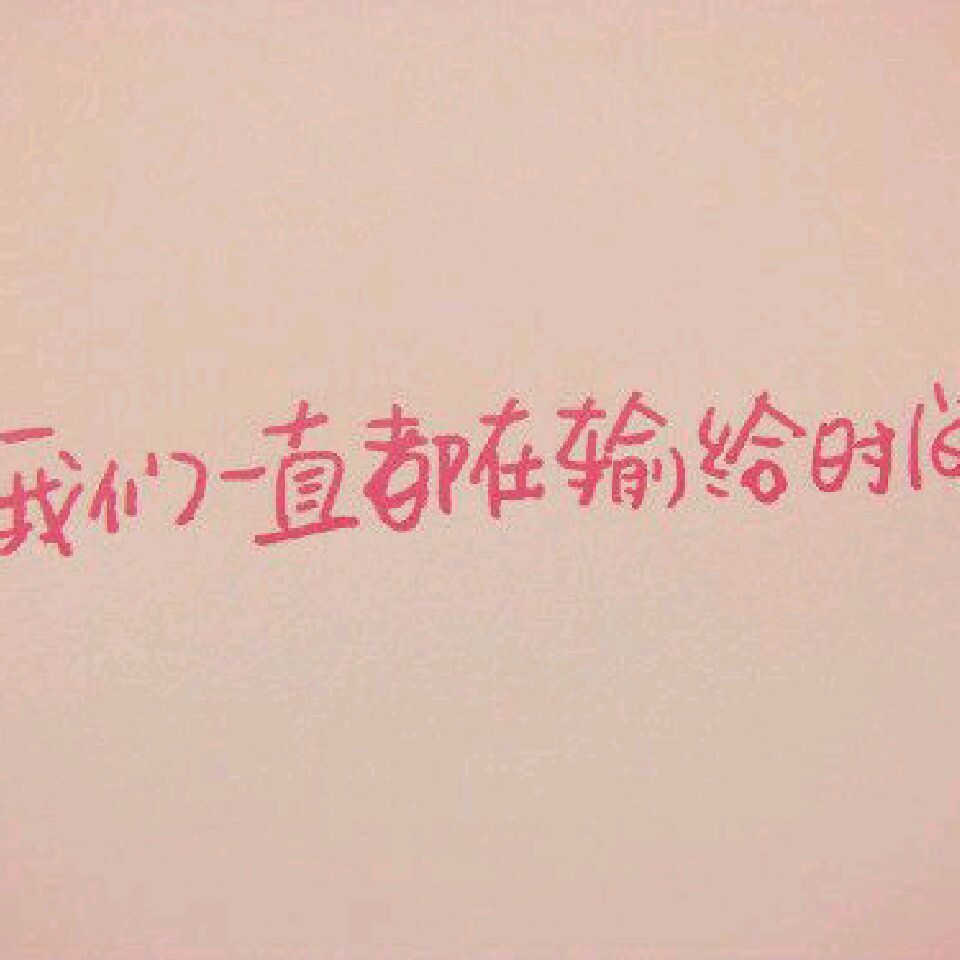 我们一直都在输给时间